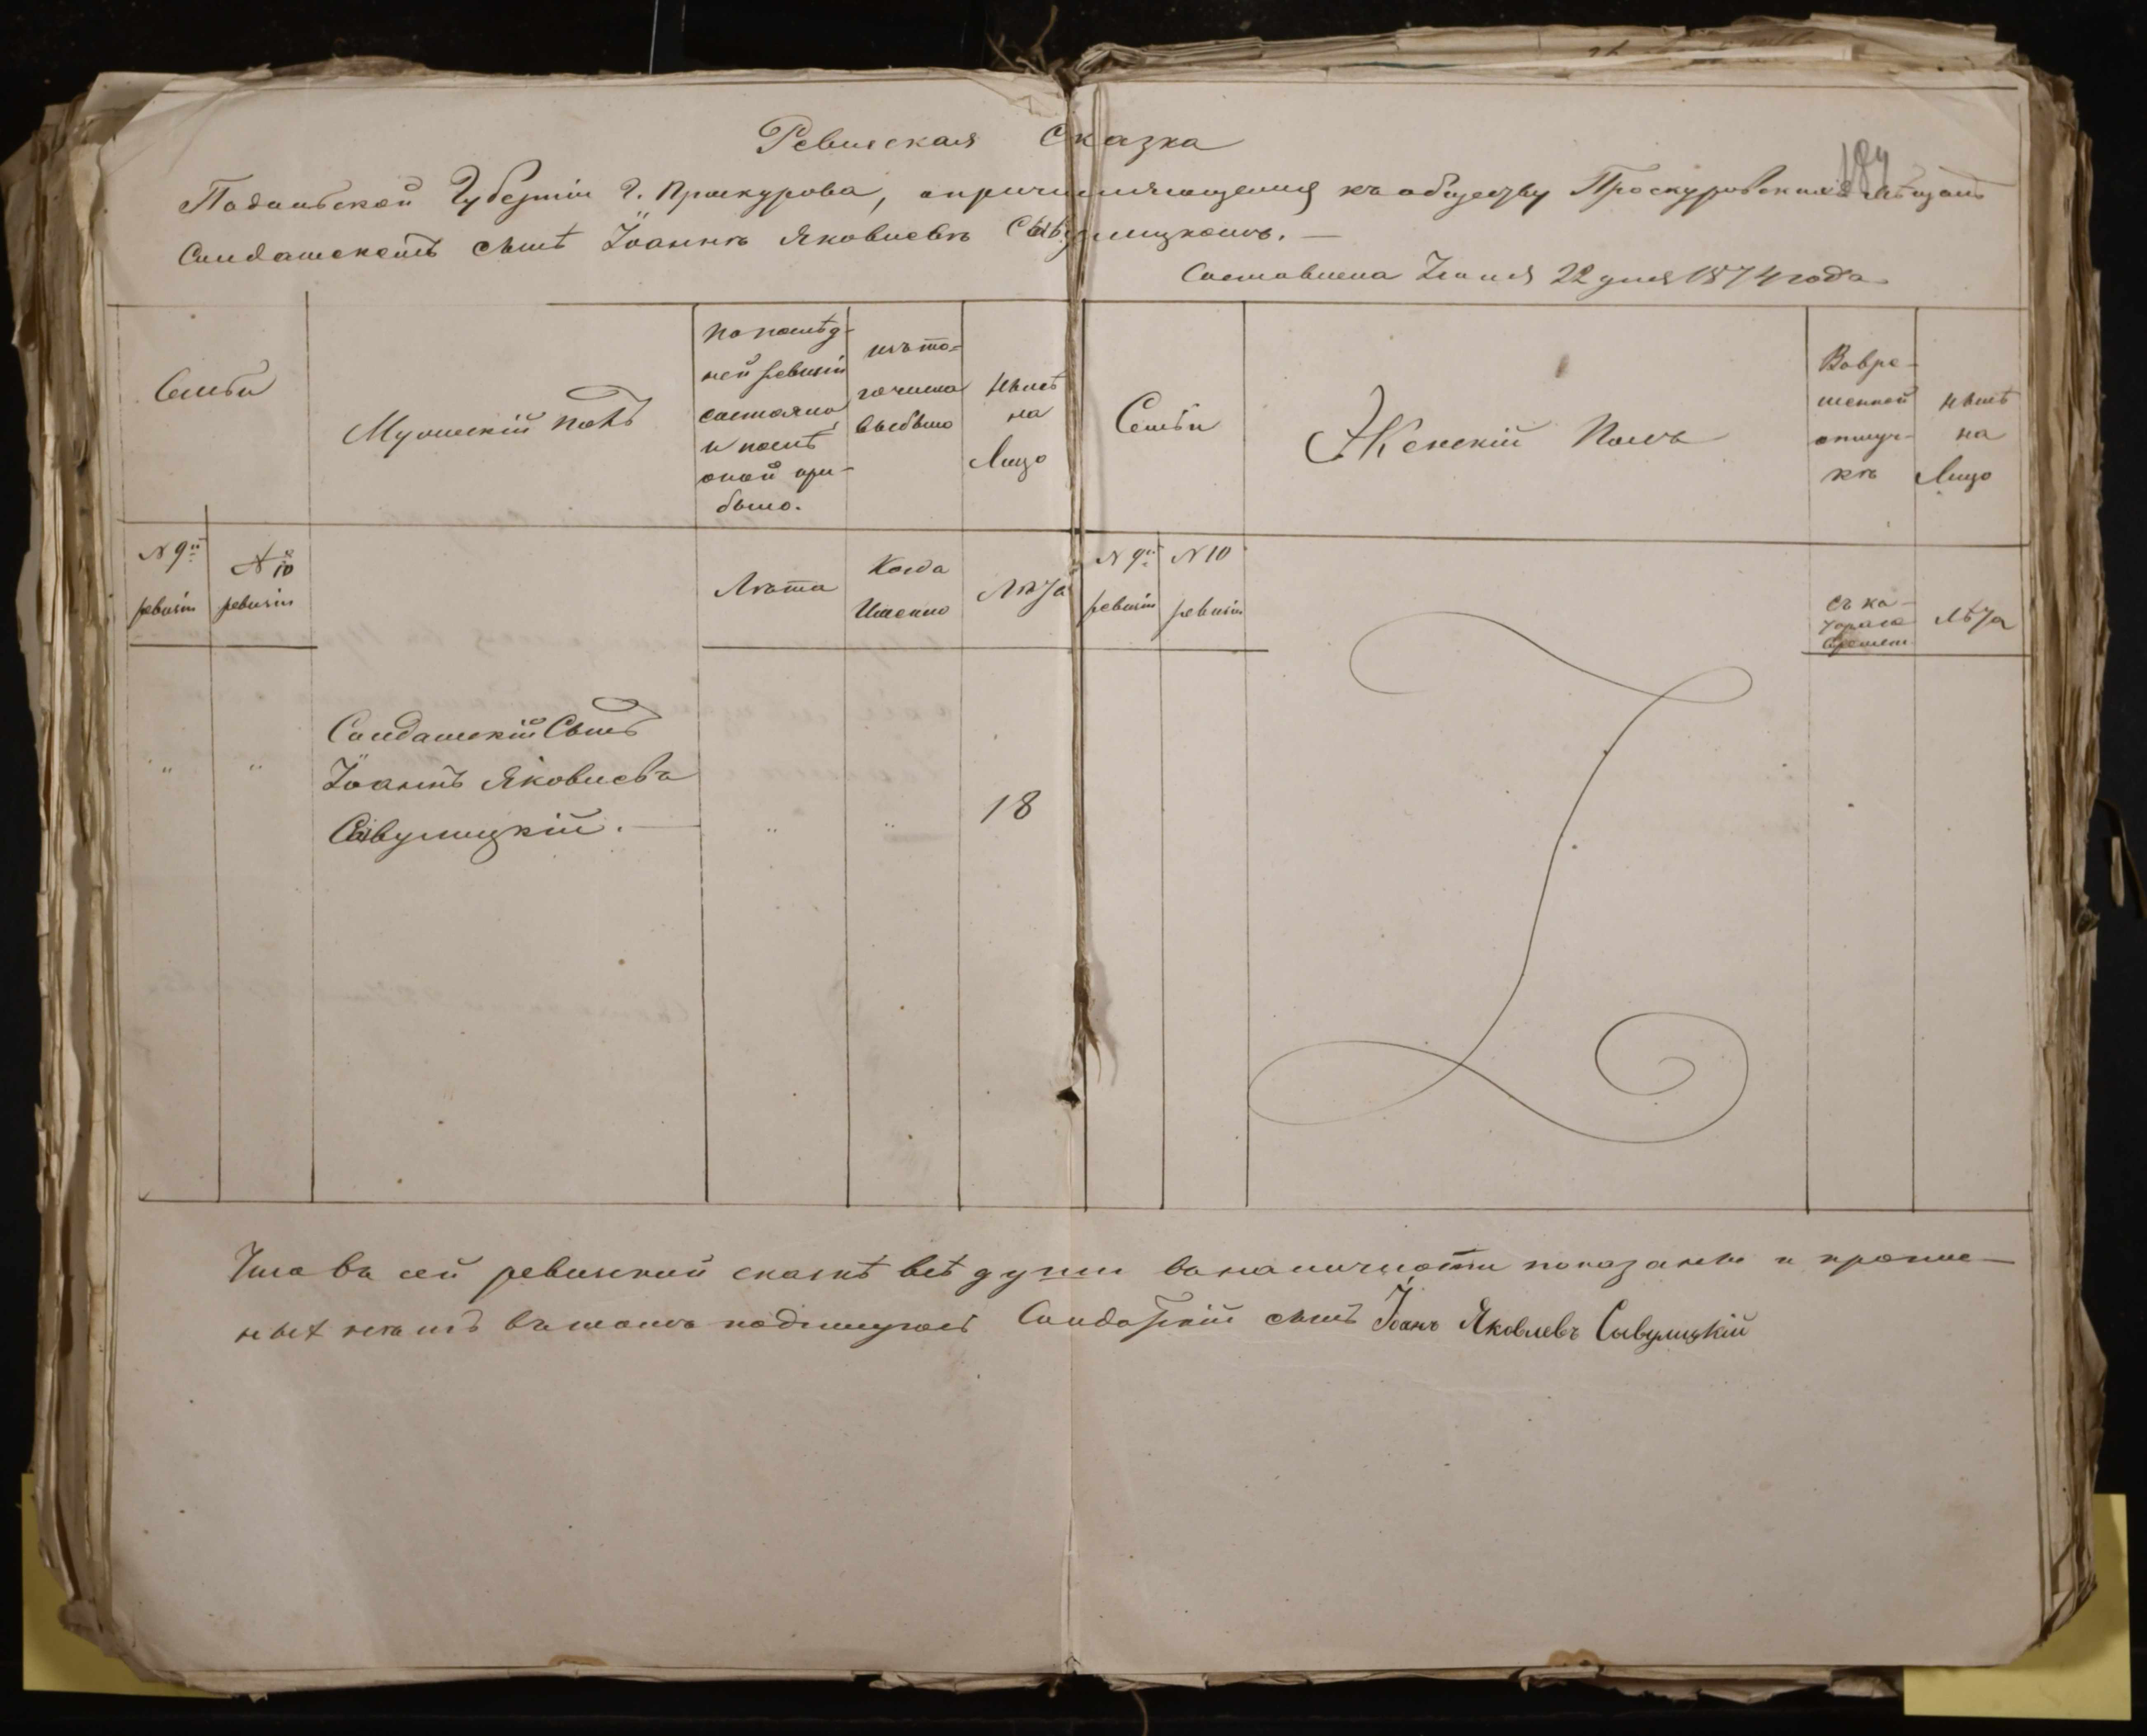 Ревизская Сказка
184
Подольской Губерніи г. Проскурова, о причисляющемся къ обществу Проскуровскихъ мѣщанъ
Солдатскомъ сынѣ Іоаннѣ Яковлевѣ Савулицкомъ. —
Составлена Іюня 22 дня 1874 года
Семьи
Мужескій полъ
По послѣд-
ней ревизіи
состояло
и послѣ
оной при-
было.
изъ то-
го числа
выбыло
Нынѣ
на
Лицо
Семьи
Женскій Полъ
Во вре-
менной
отлуч-
кѣ
Нынѣ
на
Лицо
№ 9й
ревизіи
№ 10
ревизіи
Лѣта
Когда
Именно
Лѣта
№ 9й
ревизіи
№ 10
ревизіи
съ ко-
тораго
времени
Лѣта
" "
Солдатскій Сынъ
Іоаннъ Яковлевъ
Савулицкій. —
" "
18
Что въ сей ревизской сказкѣ всѣ души въ наличности показаны и пропис-
ныхъ нѣтъ въ томъ подпишуюсь Солдатскій сынъ Іоанъ Яковлевъ Савулицкій